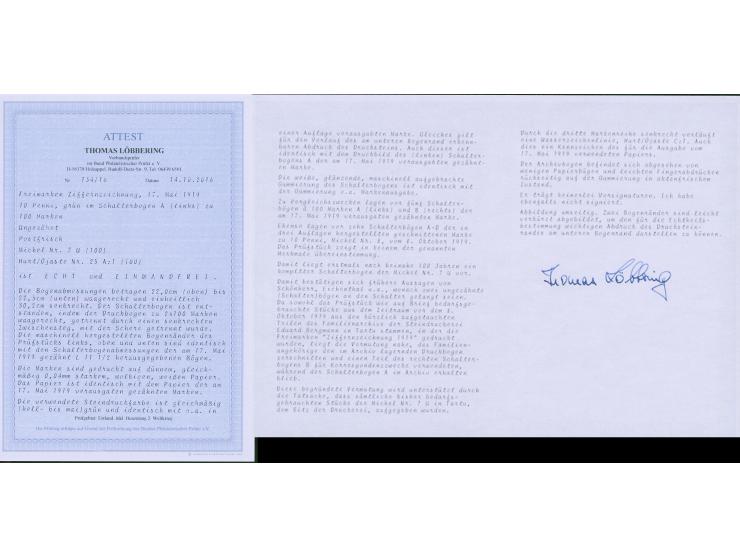 ATTEST
THOMAS LÖBBERING
Verbandsprüfer
im Bund Philatelistischer Prüfer e. V.
Nr. 754/16 Datum 14.10.2016
Freimarken Ziffernzeichnung, 17. Mai 1919
10 Penni, grün im Schalterbogen A (links) zu
100 Marken
Ungezähnt
Postfrisch
Michel Nr. 7 U (100)
Hurt/Ojaste Nr. 25 A:1 (100)
ist ECHT und EINWANDFREI.
Die Bogenabmessungen betragen 22,0cm (oben) bis
22,5cm (unten) waagerecht und einheitlich
30,2cm senkrecht. Der Schalterbogen ist ent-
standen, indem der Druckbogen zu 2x100 Marken
waagerecht, getrennt durch einen senkrechten
Zwischensteg, mit der Schere getrennt wurde.
Die maschinell hergestellten Bogenränder des
Prüfstücks links, oben und unten sind identisch
mit den Schalterbogenabmessungen der am 17. Mai
1919 gezähnt L 11 1/2 herausgegebenen Bögen.
Die Marken sind gedruckt auf dünnem, gleich-
mäßig 0,04mm starkem, weißem Papier.
Das Papier ist identisch mit dem Papier der am
17. Mai 1919 verausgaben gezähnten Marken.
Die verwendete Steindruckfarbe ist gleichmäßig
(hell- bis mai)grün und identisch mit o.a. in
einer Auflage verausgabten Marke. Gleiches gilt
für den Verlauf des am unteren Bogenrand erkenn-
baren Abdruck des Drucksteins. Auch dieser ist
identisch mit dem Druckbild des (linken) Schalter-
bogens A den am 17. Mai 1919 verausgabten gezähn-
ten Marken.
Die weiße, glänzende, maschinell aufgebrachte
Gummierung des Schalterbogens ist identisch mit
der der Gummierung o.a. Ausgabe.
Zu Vergleichszwecken lagen vor fünf Schalter-
bögen à 100 Marken A (links) und B (rechts) der
am 17. Mai 1919 verausgaben gezähnten Marken.
Ebenso lagen vor zehn Schalterbögen A-D der in
drei Auflagen hergestellten geschnittenen Marke
zu 10 Penni, Michel Nr. 8, vom 6. Oktober 1919.
Das Prüfstück zeigt in keinem der genannten
Merkmale Übereinstimmung.
Damit liegt erstmals nach beinahe 100 Jahren ein
kompletter Schalterbogen der Michel Nr. 7 U vor.
Damit bestätigen sich frühere Aussagen von
Schönherr, Eichenthal o.a., wonach zwei ungezähnte
(Schalter)bögen an den Schalter gelangt seien.
Da sowohl das Prüfstück wie auf Brief bedarfsge-
brauchte Stücke aus dem Zeitraum vor dem 6.
Oktober 1919 aus den kürzlich aufgetauchten
Teilen des Familienarchivs der Steindruckerei
Eduard Bergmann in Tartu stammen, in der die
Freimarken "Ziffernzeichnung 1919" gedruckt
wurden, liegt die Vermutung nahe, das Familien-
angehörige den im Archiv lagernden Druckbogen
zerschnitten und einen Teil des rechten Schalter-
bogens B für Korrespondenzzwecke verwendeten,
während der Schalterbogen A im Archiv erhalten
blieb.
Diese begründete Vermutung wird unterstützt durch
die Tatsache, dass sämtliche bisher bedarfs-
gebrauchten Stücke der Michel Nr. 7 U in Tartu,
dem Sitz der Druckerei, aufgegeben wurden.
Durch die dritte Markenreihe senkrecht verläuft
eine Wasserzeichenlinie, Hurt/Ojaste C:1. Auch
dies ein Kennzeichen des für die Ausgabe vom
17. Mai 1919 verwendeten Papiers.
Der Archivbogen befindet sich abgesehen von
wenigen Papierbügen und leichten Fingerabdrücken
rückseitig auf der Gummierung in einwandfreiem
Zustand.
Er trägt keinerlei Vorsignaturen. Ich habe
ebenfalls nicht signiert.
Abbildung umseitig. Zwei Bogenränder sind leicht
verkürzt abgebildet, um den für die Echtheits-
bestimmung wichtigen Abdruck des Druckstein-
randes am unteren Bogenrand darstellen zu können.
Thomas Löbbering